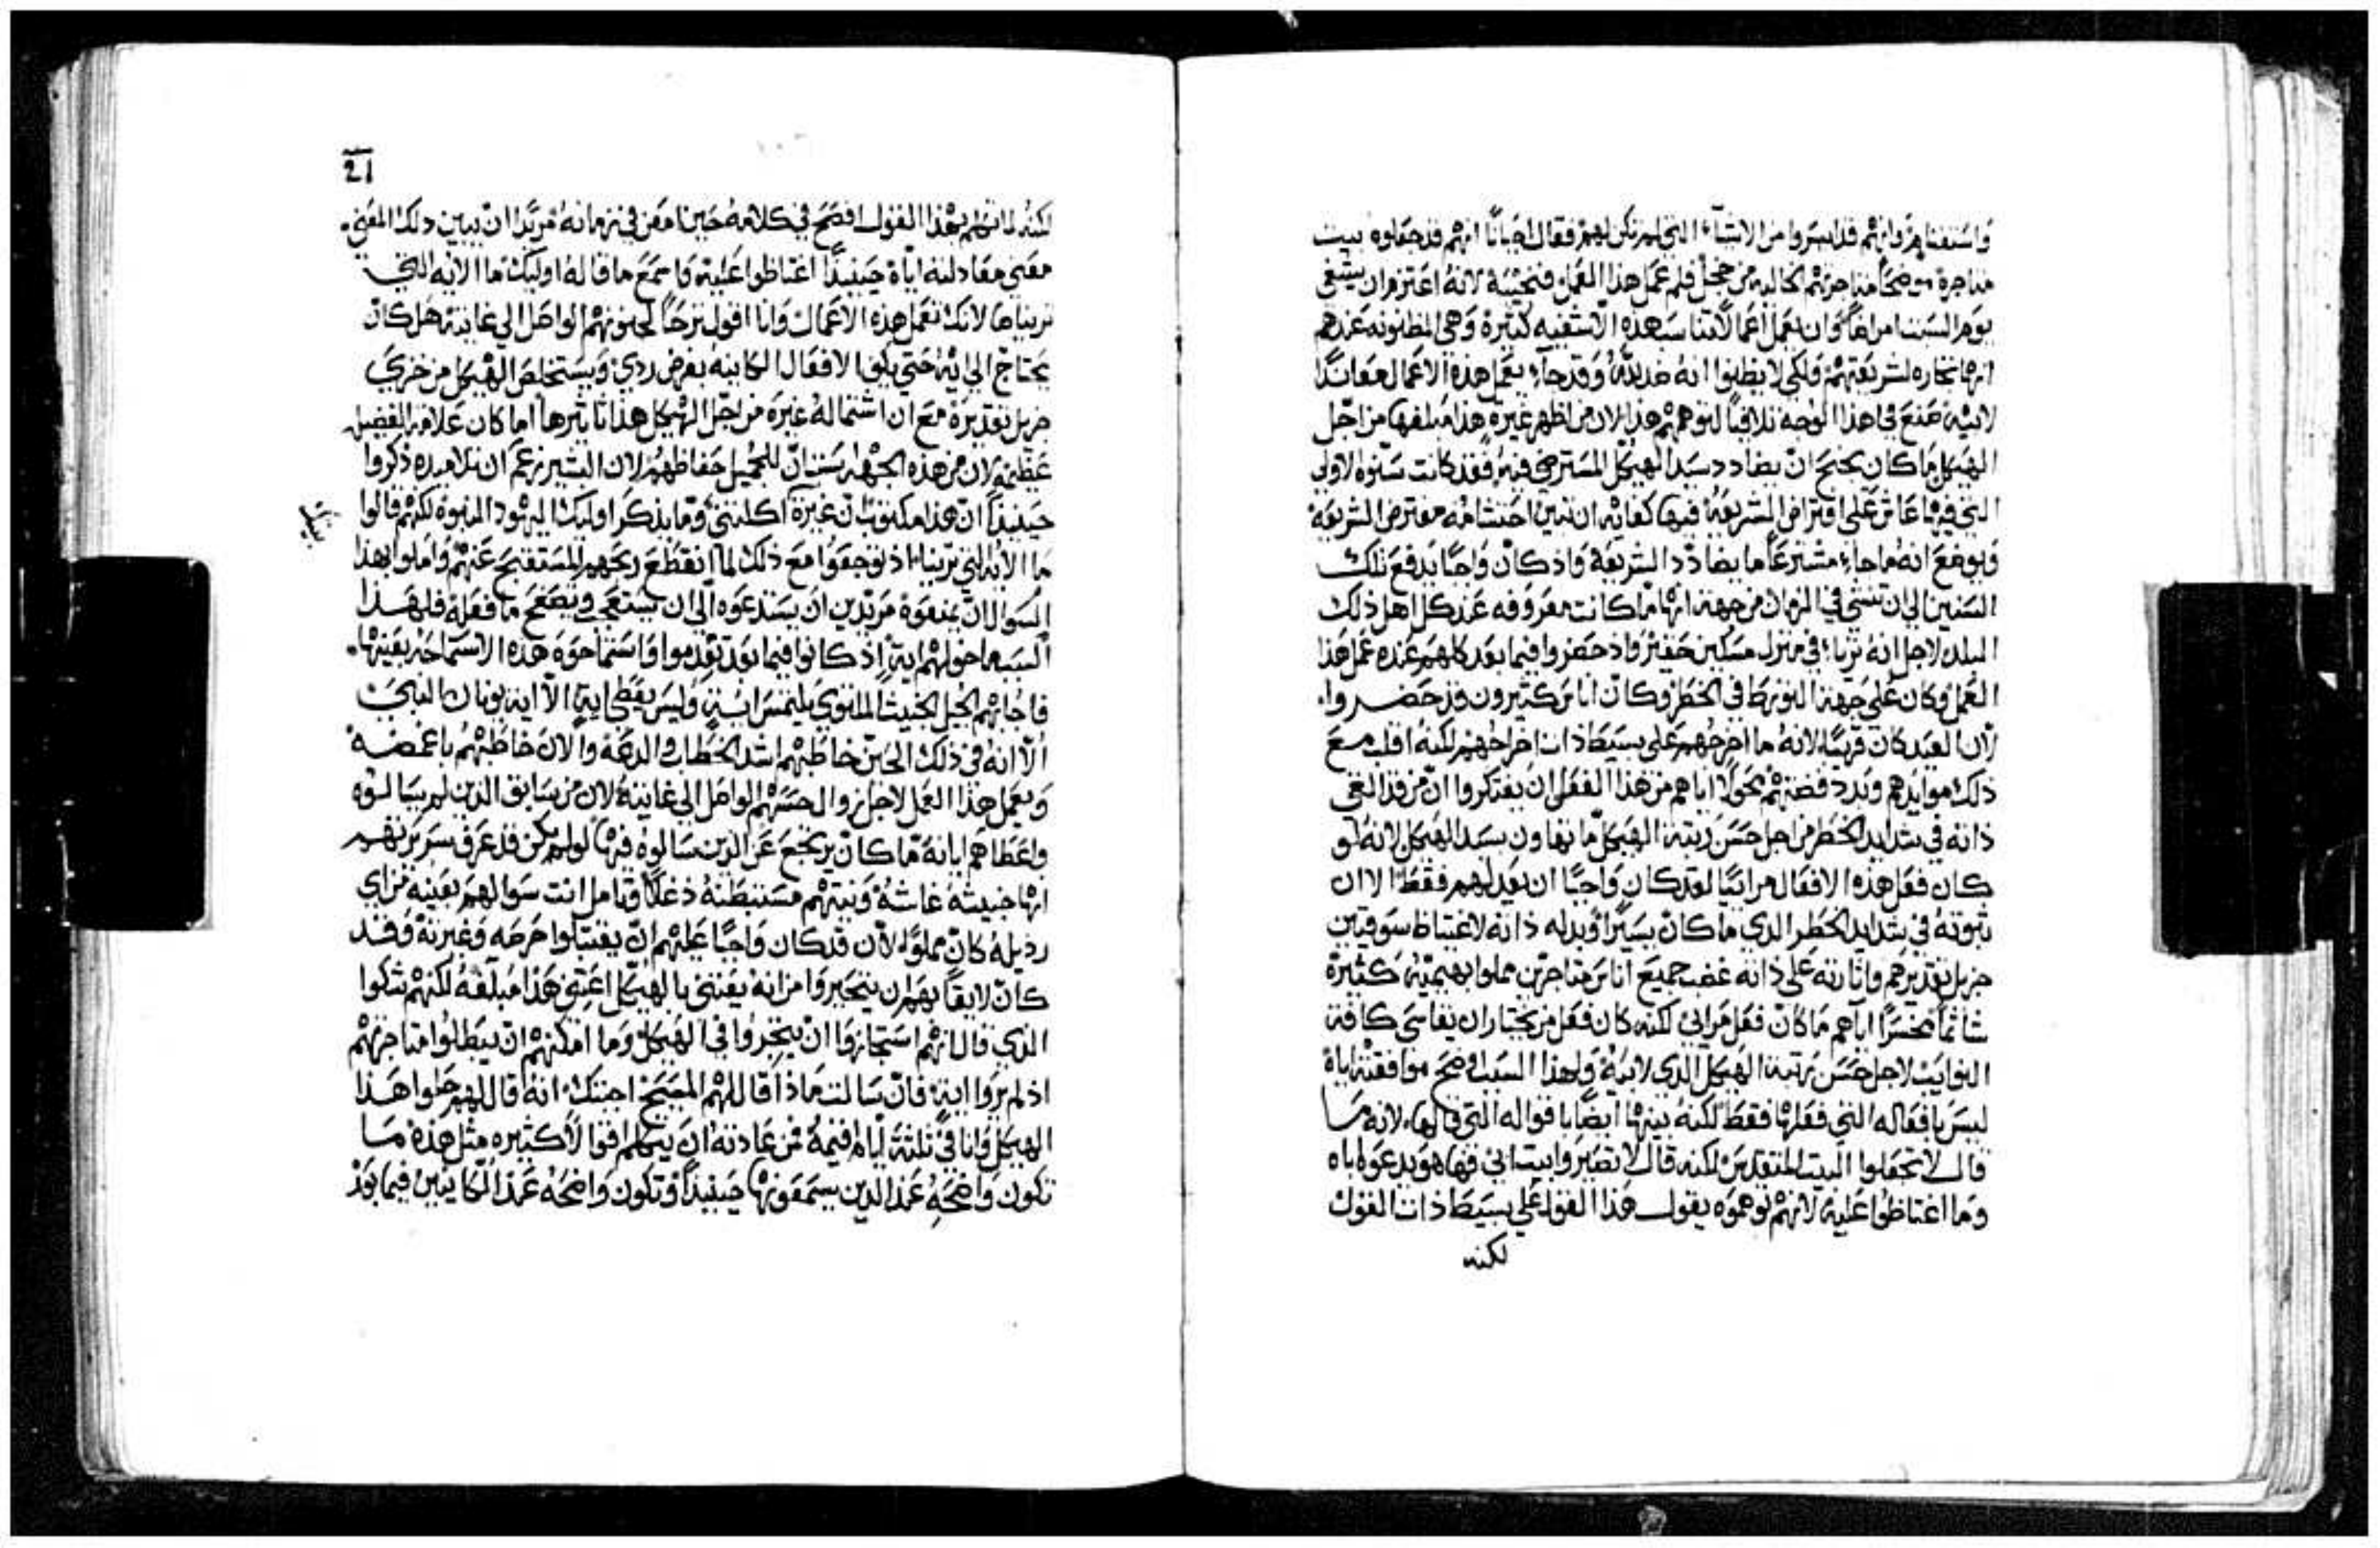 واستغنامهم وانهم قد ابسروا من الاشياء التي لم تكن لهم فقال احيانًا انهم قد جعلوه بيت
متاجرة موضحًا متاجرتهم الحاليه من خجل فلم عمل هذا العمل فنجيبه لانه اعتزم ان يشفي
يوم السبت امراضًا وان يعمل اعمالًا تناسب هذه الاشفيه كثيرة وهي المظنونه عندهم
انها تجاره لشريعتهم ولكي لا يظنوا انه ضد لله وقد جاء يعمل هذه الاعمال معاندًا
لابيه صنع في هذا الوجه تلافيًا لتوهمهم هذا لان من اظهر غيره هذا مبلغها من اجل
الهيكل ما كان يجنح ان يضادد سيد الهيكل المسترضي فيه فقد كانت سنوه الاولى
التي فيها عاش على افتراض الشريعة فيها كفايه ان تبين احتشامه مفترض الشريعه
ويوضع انه ما جاء مشترعًا ما يضادد الشريعة واذ كان واجبًا بدفع تلك
السنين الى ان تنسى في الزمان من جهة انها ما كانت معروفه عند كل اهل ذلك
البلد لاجل انه تربا في منزل مسكين حقير واذ حضروا فيما بعد كلهم عنده عمل هذا
العمل وكان على جهة التورط في الخطر وكان اناس كثيرون قد حضروا
لان العيد كان قريبًا لانه ما اخرجهم على بسيط ذات اخراجهم لكنه اقلب مع
ذلك موايدهم وبدد فضتهم مخولًا اياهم من هذا الفعل ان يفتكروا ان من قد القى
ذاته في شدايد الخطر من اجل حسن زينة الهيكل ما تهاون بسيد الهيكل لانه لو
كان فعل هذه الافعال مرائيًا لقد كان واجبًا ان يعد لهم فقط الا ان
ثبوته في شدايد الخطر الذي ما كان يسيرًا وبدله ذاته لاغتياظ سوقيين
جزيل تقديرهم واثارته على ذاته غضب جميع اناس متاجرين مملوا بهيمية كثيرة
شاتمًا مخسرًا اياهم ما كان فعل مرائي لكنه كان فعل من يختار ان يقاسي كافة
النوايب لاجل حسن زينة الهيكل الذي لابيه ولهذا السبب اوضح موافقته اياه
ليس بافعاله التي فعلها فقط لكنه بينها ايضًا باقواله التي قالها لانه ما
قال لا تجعلوا البيت المتقدس لكنه قال لا تصيروا بيت ابي فها هو يدعوه اباه
وما اغتاظوا عليه لانهم توهموه يقول هذا القول على بسيط ذات القول
لكنه
21
لكنه لما توهم بهذا القول افصح في كلامه حينًا معن في زمانه مريدًا ان يبين ذلك المعنى
معنى معادلته اياه حينيذٍ اغتاظوا عليه واسمع ما قاله اوليك ما الايه التي
تريناها لانك تعمل هذه الاعمال وانا اقول ترحًا لجنونهم الواصل الي غايته هل كان
يحتاج الى ايه حتى يكف الافعال الكاينه بغرض ردي ويستخلص الهيكل من خزي
جزيل تقديره مع ان اشتماله غيره من اجل الهيكل هذا تاثيرها اما كان علامه لفضيله
عظيمه لان من هذه الجهه يستبان للجميل حفاظهم لان البشير زعم ان تلاميذه ذكروا
حينيذٍ ان هذا مكتوب ان غيرة اكلتني وما يذكر اوليك اليهود النبوة لكنهم قالوا
ما الايه التي ترينا اذ توجعوا مع ذلك لما انقطع ربحهم المستقبح عنهم واملوا بهذا
السوال ان يمنعوه مريدين ان يستدعوه الى ان يستعجب ويفضح ما فعله فلهذا
السبب ما خولهم ايه اذ كانوا فيما بعد تقدموا واستماحوه هذه الاستماحه بعينها
فاجابهم الجيل الخبيث الملتوي يلتمس ايةً وليس يعطى اية الا اية يونان النبي
الا انه في ذلك الحين خاطبهم اشد الخطاب والدعه والان خاطبهم باغمضه
ويعمل هذا العمل لاجل زوال حسهم الواصل الى غايته لان من سابق الذين لم يسالوه
واعطاهم اياته ما كان يرتجع عن الذين سالوه فيها لو لم يكن قد عرف سريرتهم
انها خبيثه غاشة ونيتهم مستبطنة دغلًا وتامل انت سوالهم بعينه من اي
رذيلة كان مملوًا لان قد كان واجبًا عليهم ان يقتبلوا حرصه وغيرته وقد
كان لايقًا بهم ان يتحيروا من انه يعتني بالهيكل اعتنى هذا مبلغه لكنهم شكوا
الذي قال انهم استجازوا ان يتجروا في الهيكل وما امكنهم ان يبطلوا متاجرتهم
اذ لم يروا اية فان سالت ماذا قال لهم المسيح اجبتك انه قال لهم حلوا هذا
الهيكل وانا في ثلثة ايام اقيمه من عادته ان يتكلم اقوالًا كثيره مثل هذه ما
تكون واضحة عند الذين يسمعونها حينيذٍ وتكون واضحه عند الكاينين فيما بعد